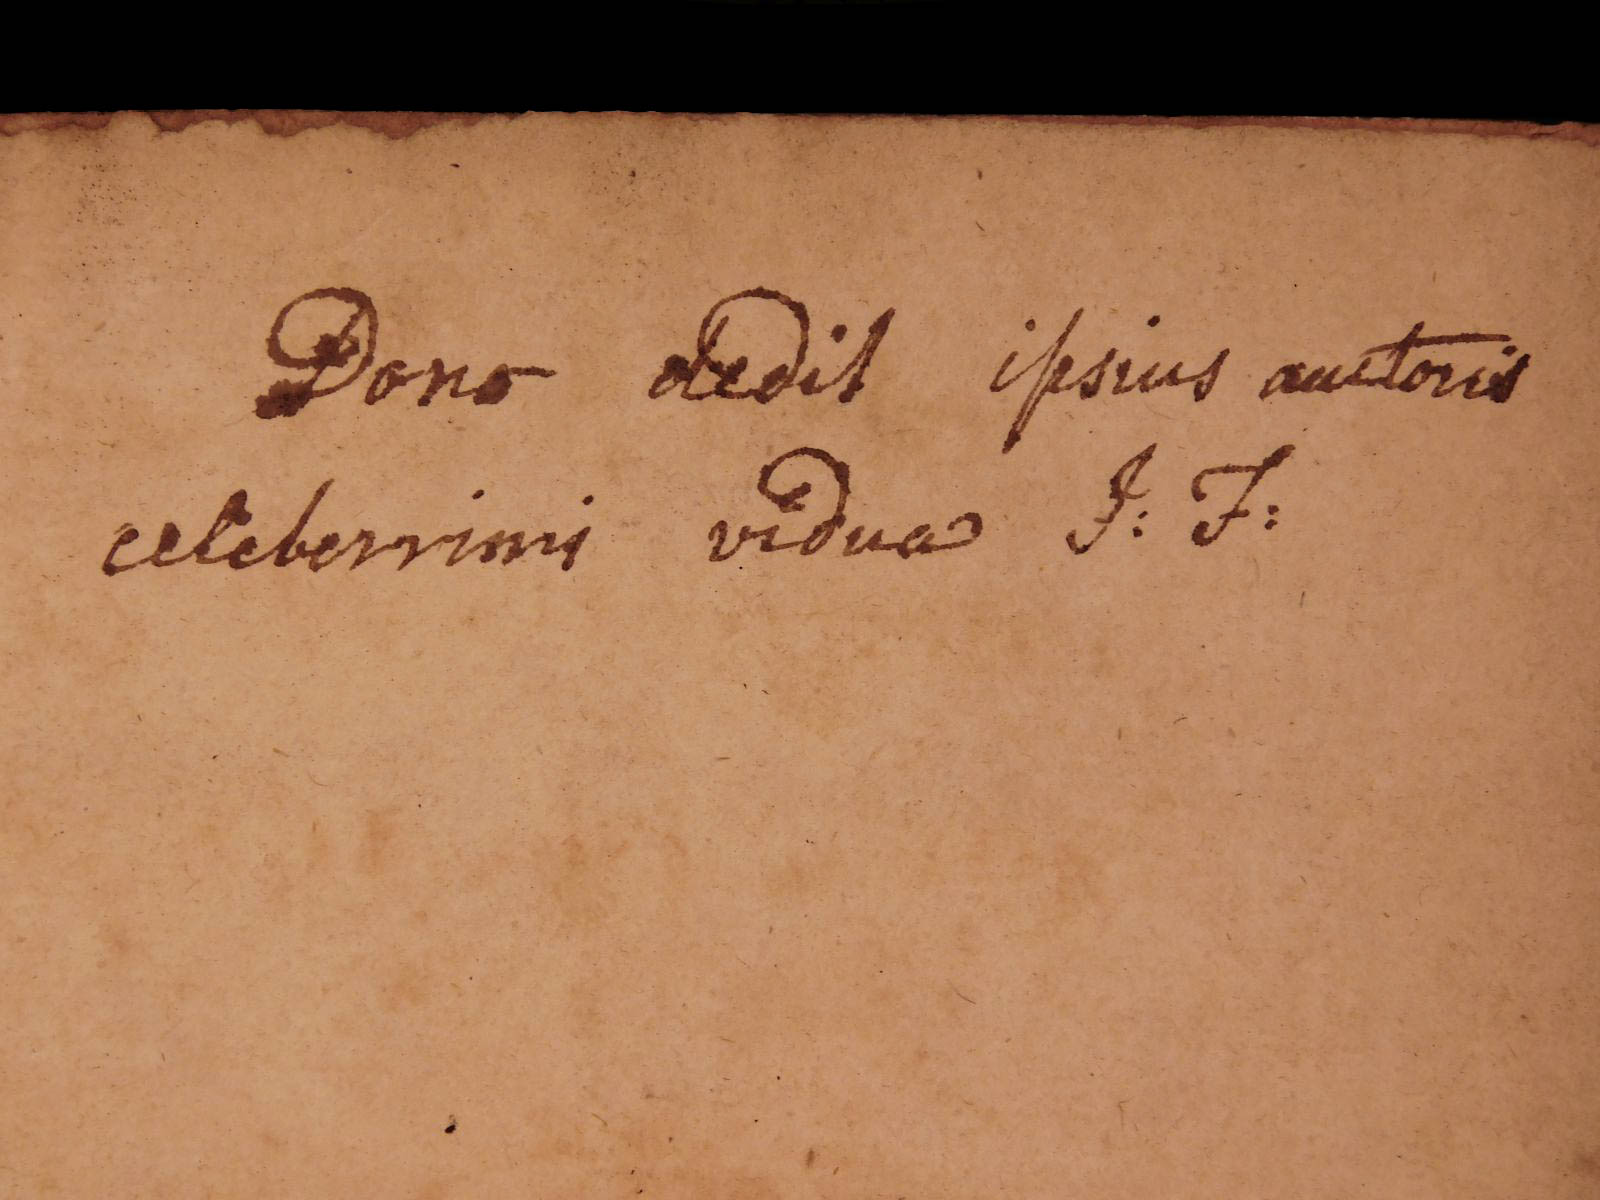 Dono dedit ipsius auctoris
celeberrimi vidua J: F: